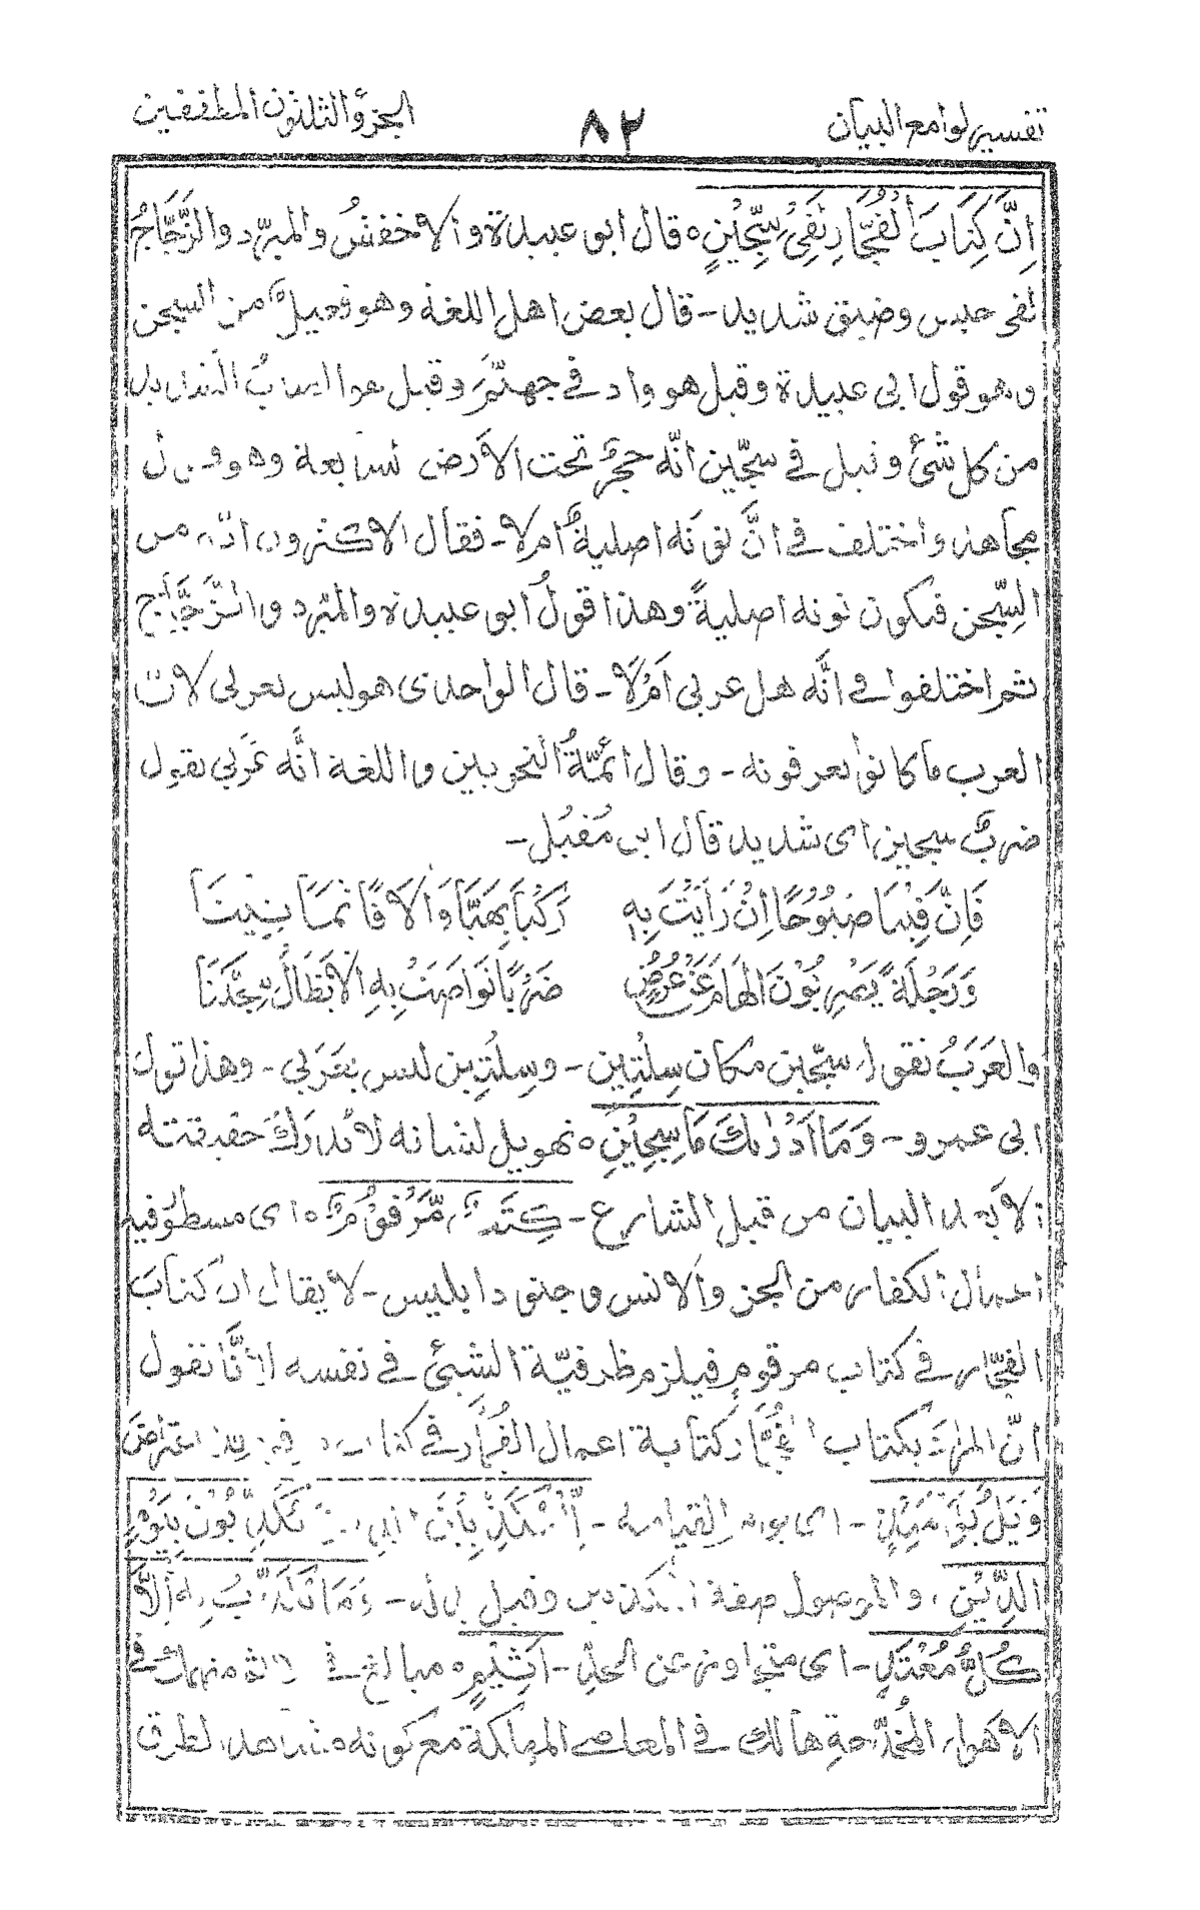 تفسير لوامع البيان ٨٢ الجزؤ الثلثون المطففين
اِنَّ كِتَابَ الْفُجَّارِ لَفِىْ سِجِّيْنٍ ه قال ابو عبيدة والاخفشُ والمبرّد والزَّجَّاجُ
لفى حبس وضيق شديد - قال بعض اهل اللغة وهو فعيلٌ من السجن
وهو قول ابى عبيدة وقيل هو واد فى جهنّمَ وقيل
من كل شئ وقيل فى سجّين انّه حجرٌ تحت الأرض السابعة وهو قول
مجاهد واختلف فى انَّ نونَه اصليةٌ ام لا - فقال الاكثرون انّه من
السِّجن فيكون نونه اصليةً وهذا قولُ ابو عبيدة والمبّرد والزَّجَّاج
ثم اختلفوا فى انَّه هل عربى اَمْ لَا - قال الواحدى هو ليس بعربى لانّ
العرب ما كانوا يعرفونه - وقال أئمّةُ النحويين واللغة انَّه عَربي يقول
ضربٌ سجين اى شديد قال ابن مُقبُل -
فَاِنَّ فِيْنَا صَبُوْحًا اِنْ رَاَيْتَ بِهٖ رَكْبًا بَهِيًّا وَاٰلَافًا ثَمَانِيْنَا
وَرَجْلَةً يَضْرِبُوْنَ الْهَامَ عَنْ عُرُضٍ ضَرْبًا تَوَاصَتْ بِهِ الْاَبْطَالُ سِجِّيْنَا
والعَرَبُ تقول سجّين مكان سِلْتِين - وسِلْتِين ليس بعَرَبى - وهذا قول
ابى عمرو - وَمَا اَدْرٰىكَ مَا سِجِّيْنٌ ه تهويل لشانه لا تُدْرَكُ حقيقته
الا بهذا البيان من قبل الشارع - كِتٰبٌ مَّرْقُوْمٌ ه اى مسطورٌ فيه
اعمال الكفار من الجن والانس وجنود ابليس - لا يقال انّ كتابَ
الفجّار فى كتاب مرقوم فيلزم ظرفيّة الشئ فى نفسه لانَّا نقول
انّ المرادَ بكتاب الفُجَّار كتابة اعمال الفُجّار فى كتاب
وَيْلٌ يَّوْمَئِذٍ - اى يوم القيامة - لِّلْمُكَذِّبِيْنَ الَّذِيْنَ يُكَذِّبُوْنَ بِيَوْمِ
الدِّيْنِ، والموصول صفة المكذبين وقيل بدل - وَمَا يُكَذِّبُ بِهٖ اِلَّا
كُلُّ مُعْتَدٍ - اى متجاوز عن الحدّ - اَثِيْمٍ ه مبالغ فى منهمك فى
الاهواء المُخدّجة هالك فى المعاصى المهلكة مع كونه مشاهد الطرق